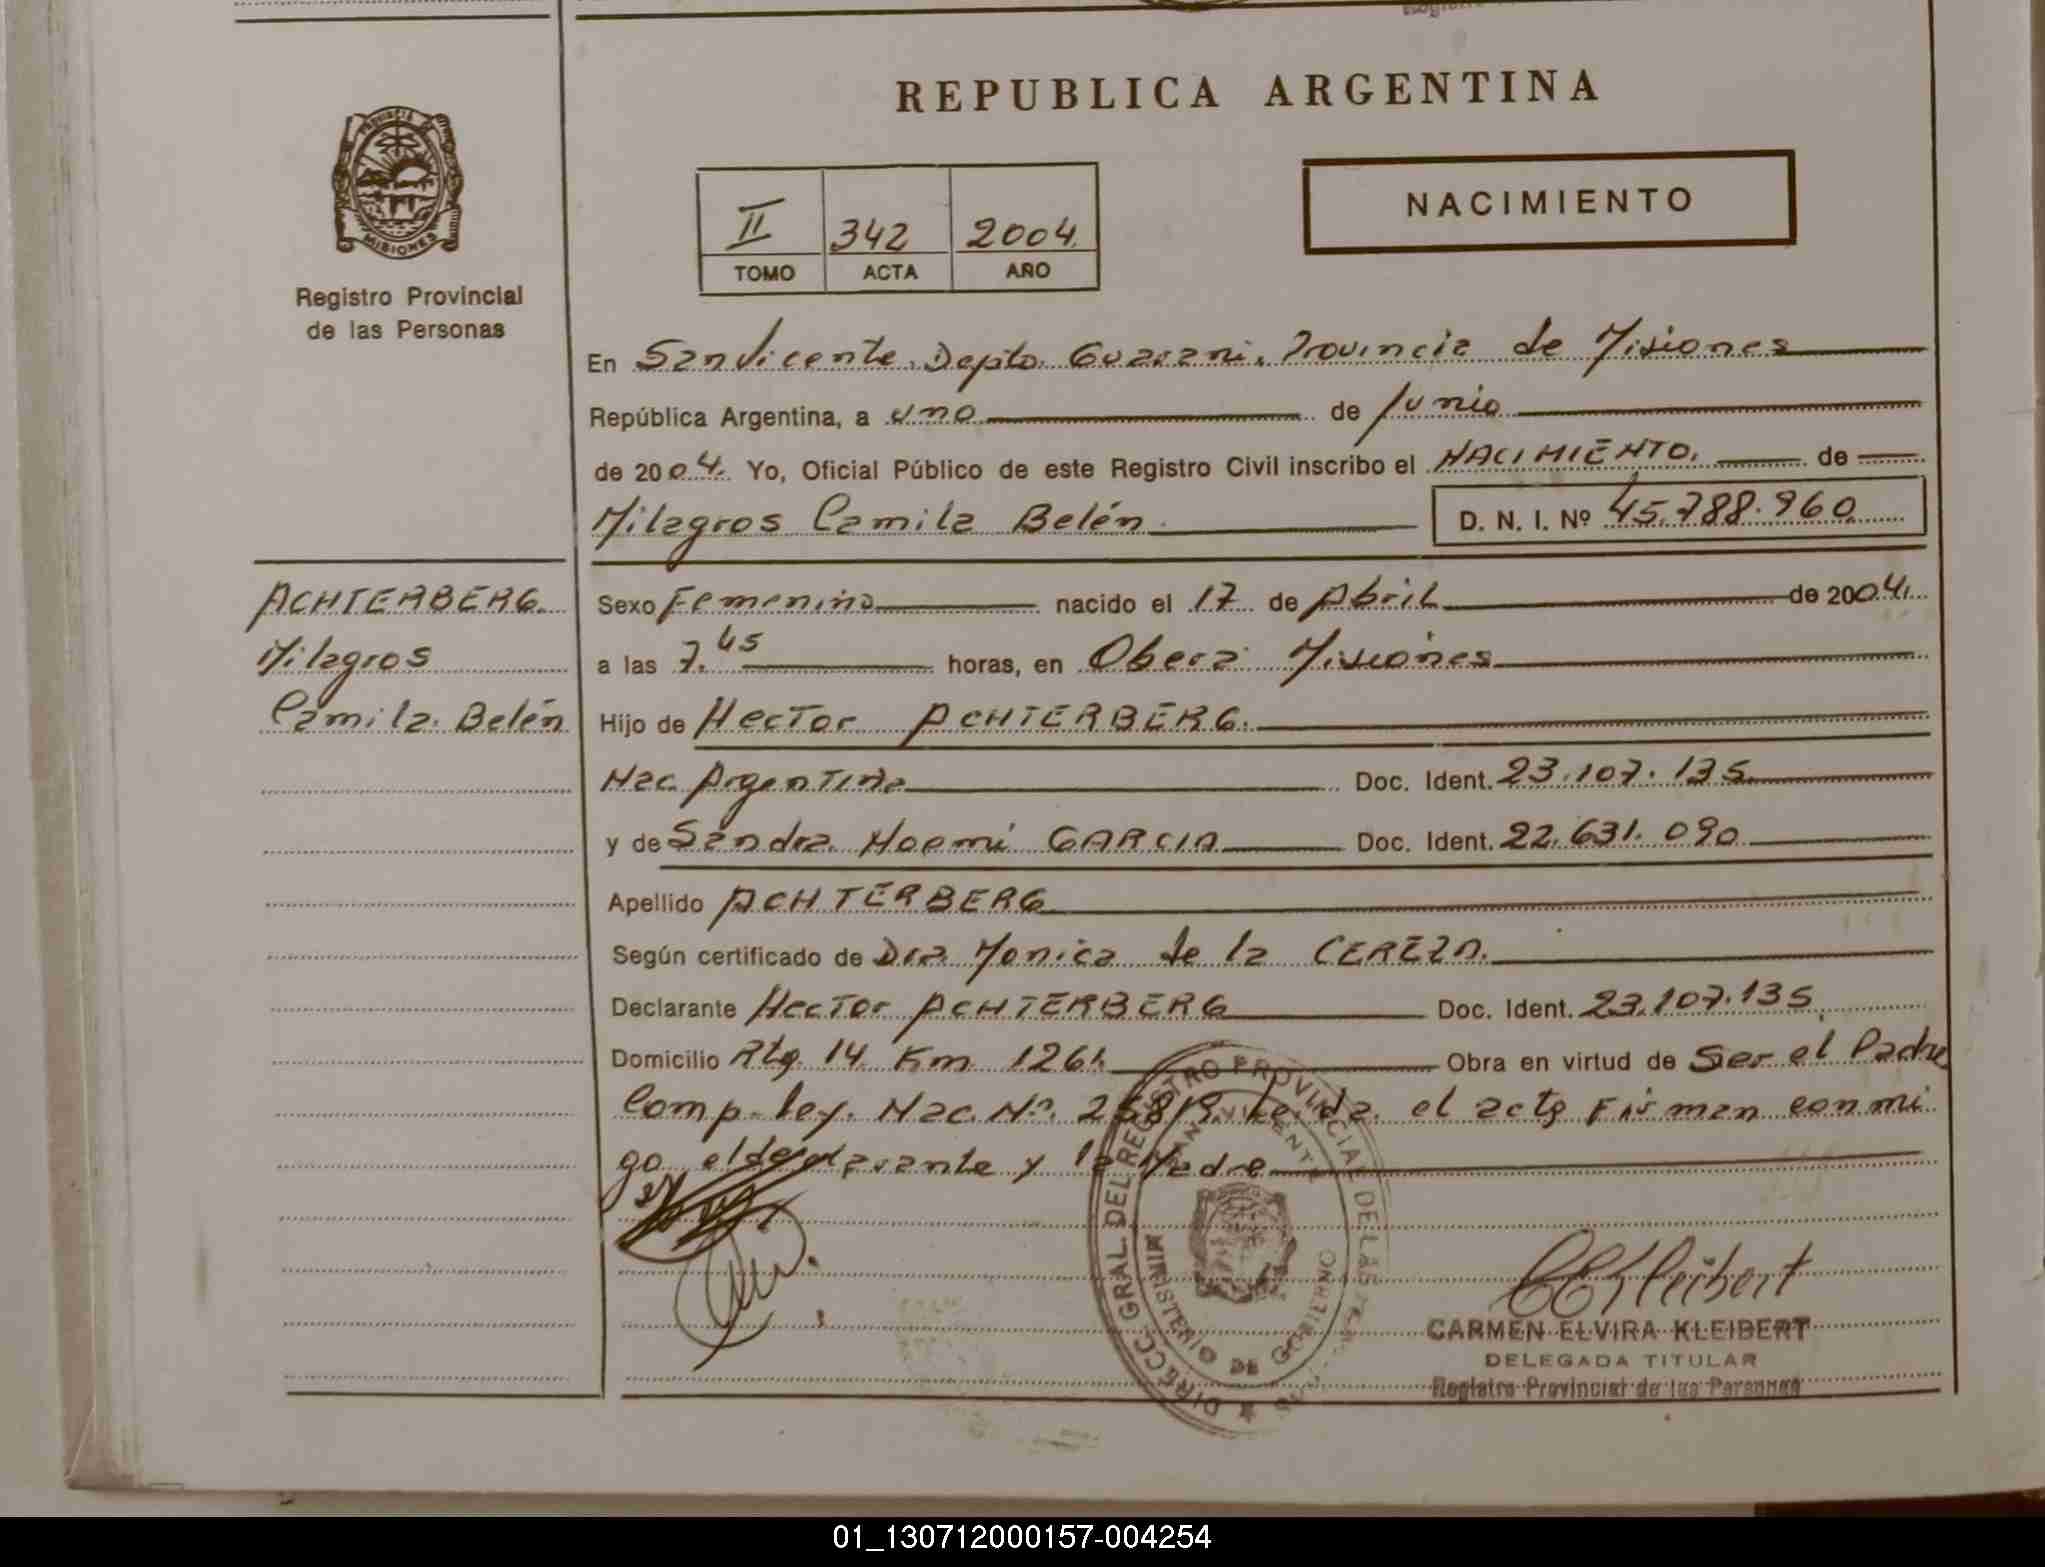 REPUBLICA ARGENTINA
PROVINCIA DE
MISIONES
Registro Provincial
de las Personas
II 342 2004
TOMO ACTA AÑO
NACIMIENTO
En San Vicente. Depto. Guarani. Provincia de Misiones
República Argentina, a uno de Junio
de 2004. Yo, Oficial Público de este Registro Civil inscribo el NACIMIENTO. de
Milagros Camila Belén. D. N. I. Nº 45.788.960
ACHTERBERG.
Milagros
Camila. Belén
Sexo Femenino nacido el 17 de Abril de 2004.
a las 7.45 horas, en Obera Misiones
Hijo de Hector ACHTERBERG.
Nac. Argentina Doc. Ident. 23.107.135
y de Sandra Noemi GARCIA Doc. Ident. 22.631.090
Apellido ACHTERBERG
Según certificado de Dra Monica de la CEREZA.
Declarante Hector ACHTERBERG Doc. Ident. 23.107.135
Domicilio Rta. 14 Km 1261. Obra en virtud de Ser el Padre
Comp. ley. Nac. Nº. el acta Firman conmi
go el declarante y la Madre
DIRECC. GRAL. DEL REGISTRO PROVINCIAL DE LAS
SAN VICENTE
MINISTERIO DE GOBIERNO
CEKleibert
CARMEN ELVIRA KLEIBERT
DELEGADA TITULAR
Registro Provincial de las Personas
01_130712000157-004254